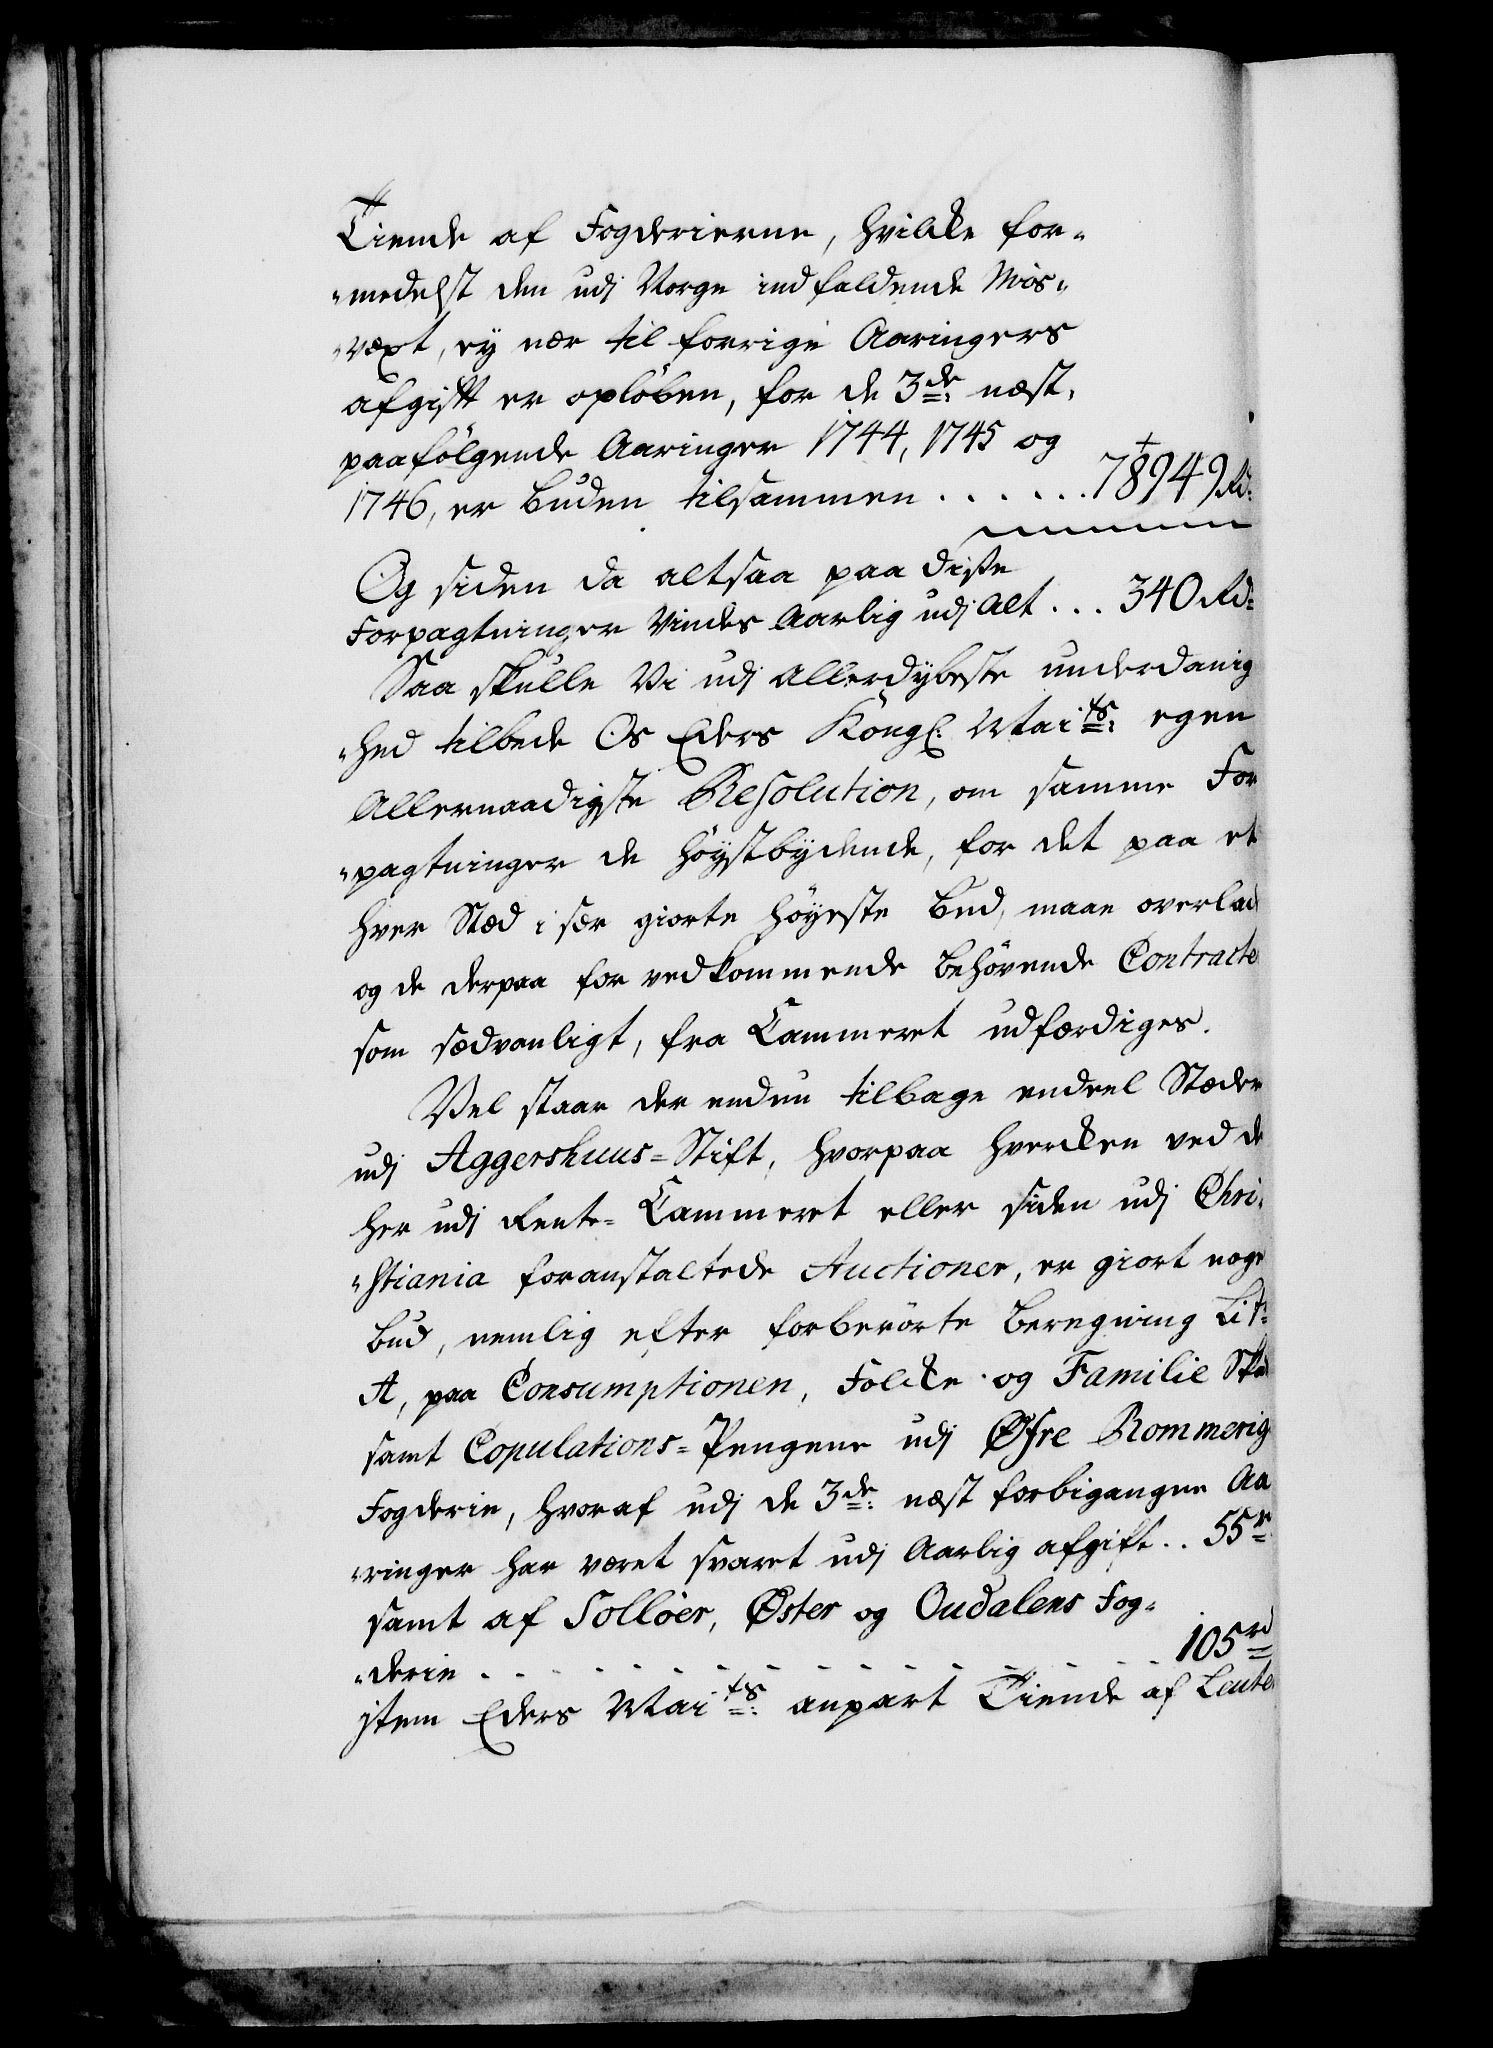 Tiende af Fogderierne, hvilke for-
-medelst den udj Norge indfaldende Mis-
-væxt, ey nær til forrige Aaringers
afgift er opløben, for de 3de: næst,
paafølgende Aaringer 1744, 1745 og
1746, er buden tilsammen . . . . . . 78949 Rd:
Og siden da altsaa paa disse
Forpagtninger Vindes Aarlig udj Alt . . . 340 Rd:
Saa skulle Vi udj Allerdybeste underdanig
-hed tilbede Os Eders Kongl: Maits: egen
Allernaadigste Resolution, om samme For
-pagtninger de høystbydende, for det paa et
hver Stæd i sær giorte høyeste Bud, maae overlad
og de derpaa for vedkommende behøvende Contracte
som sædvanligt, fra Cammeret udfærdiges.
Vel staar der endnu tilbage endeel Stæder
udj Aggershuus-Stift, hvorpaa hverken ved de
her udj Rente-Cammeret eller siden udj Chri-
-stiania foranstaltede Auctioner, er giort noge
bud, nemlig efter forberørte beregning Lit:
A, paa Consumptionen, Folcke og Familie Ska
samt Copulations-Pengene udj Øfre Rommerig
Fogderie, hvoraf udj de 3de: næst forbigangne Aa
-ringer har været svaret udj Aarlig afgift . . 55 r
samt af Solløer, Øster og Oudalens Fog-
-derie . . . . . . . . . . . . . . . . 105 rd
jtem Eders Maits: anpart Tiende af Leute